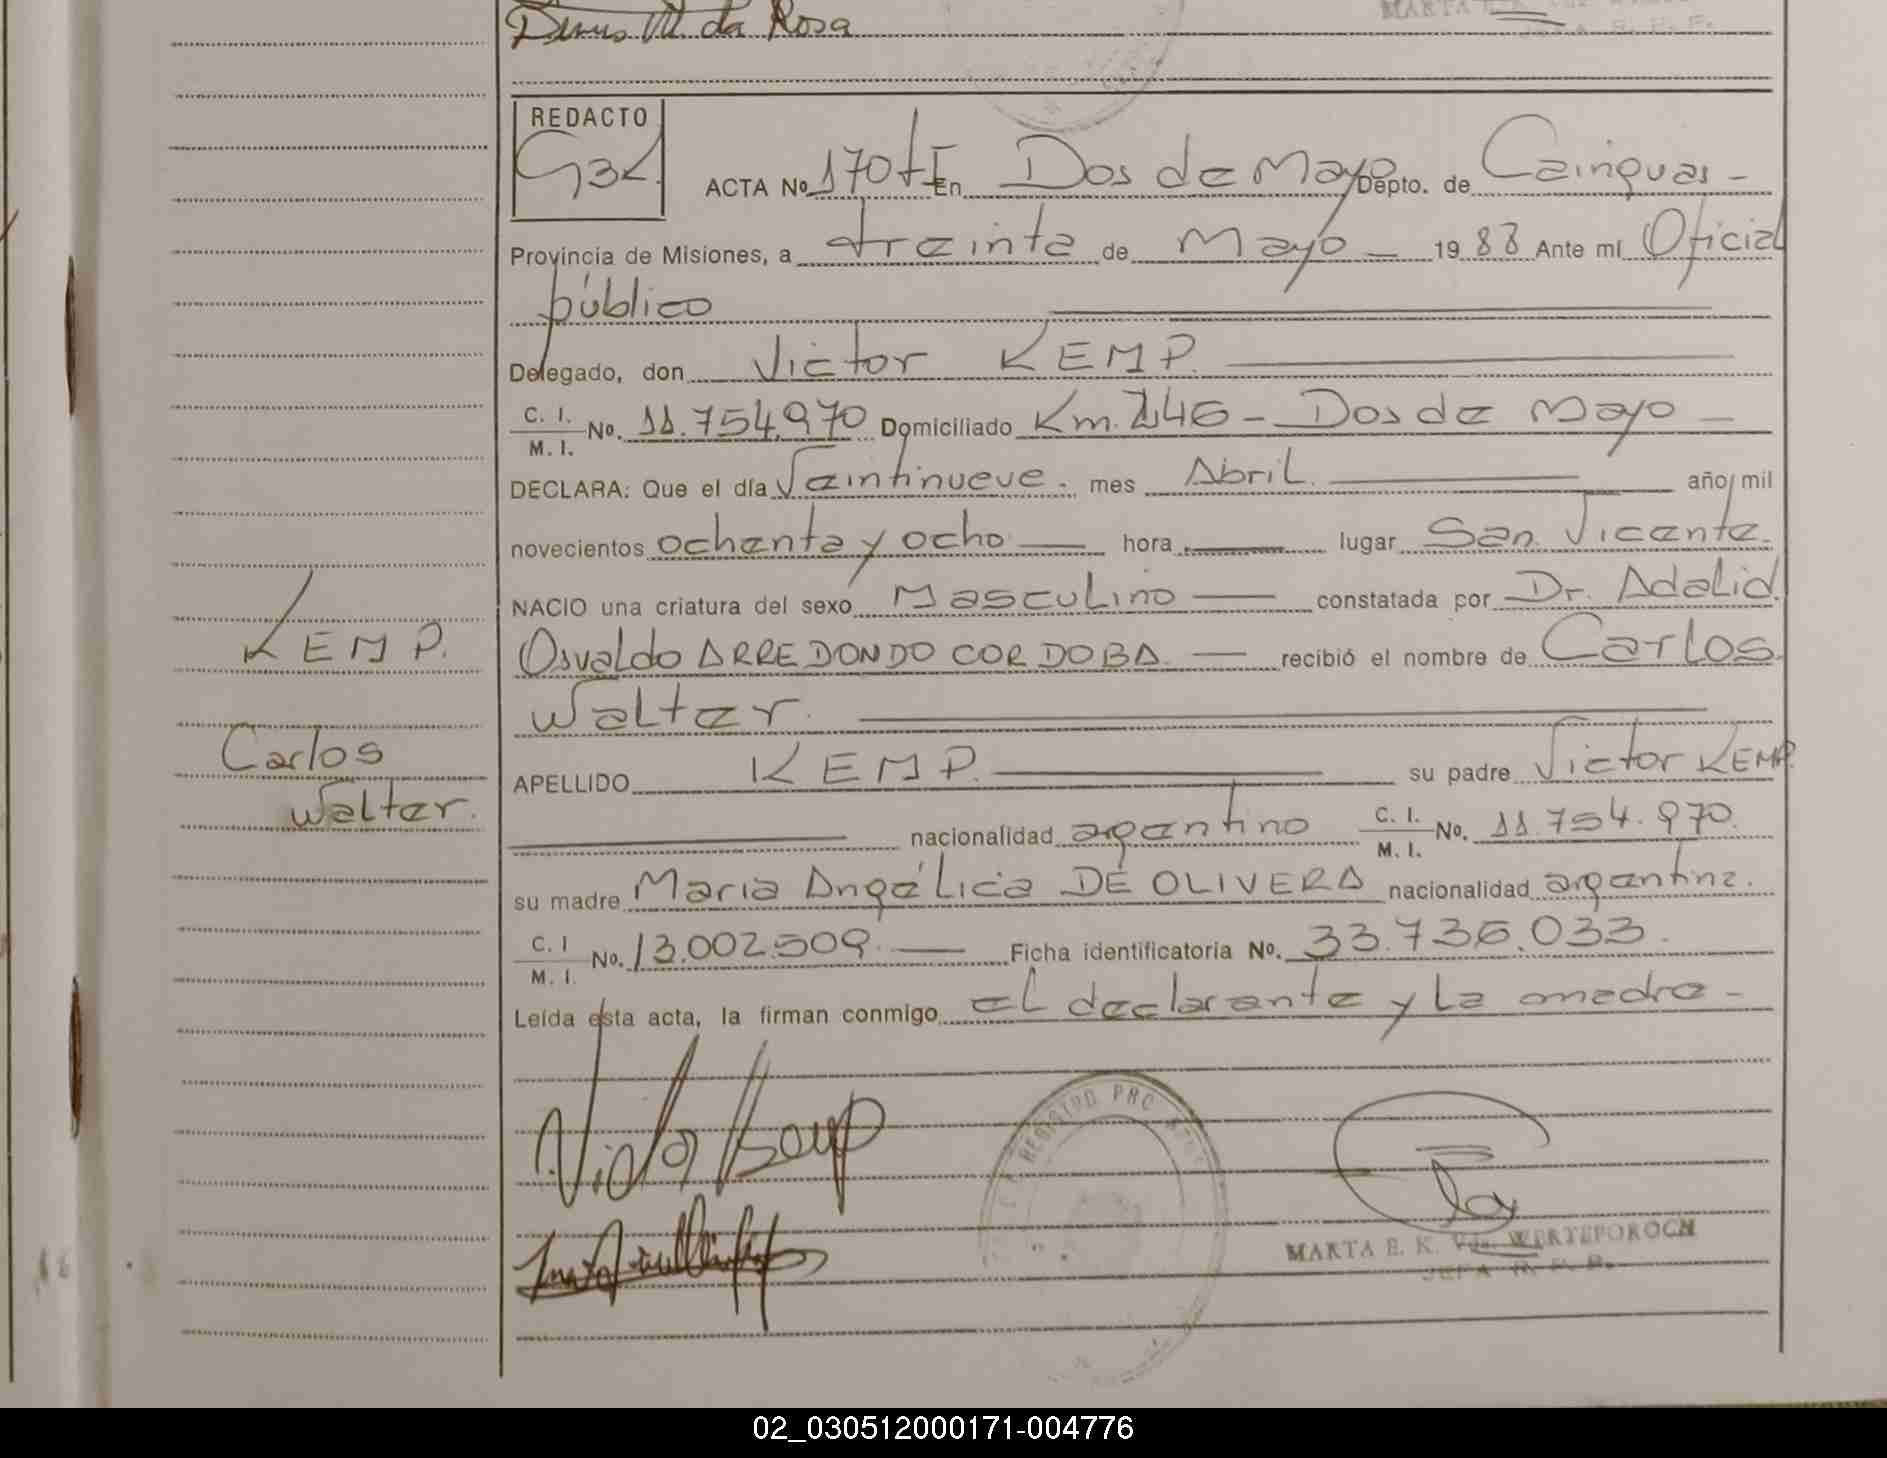 da Rosa
MARTA
REDACTO
ACTA No 170 tI En Dos de Mayo Depto. de Cainguas -
Provincia de Misiones, a treinta de Mayo - 19 88 Ante mí Oficial
público
Delegado, don Victor KEMP.
C. I. / M. I. No. 11.754.970 Domiciliado Km. 246 - Dos de Mayo -
DECLARA: Que el día Veintinueve. mes Abril. año mil
novecientos ochenta y ocho hora lugar San Vicente.
NACIO una criatura del sexo Masculino constatada por Dr. Adalid.
Osvaldo ARREDONDO CORDOBA. recibió el nombre de Carlos
Walter.
APELLIDO KEMP. su padre Victor KEMP.
nacionalidad argentino C. I. / M. I. No. 11.754.970.
su madre Maria Angélica DE OLIVERA nacionalidad argentina.
C. I / M. I. No. 13.002.509. Ficha identificatoria No. 33.736.033.
Leída esta acta, la firman conmigo el declarante y la madre -
KEMP.
Carlos
Walter.
Victor Kemp
REGISTRO PRO
MARTA E. K. Vda. WERTEPOROCH
JEFA R. P. P.
02_030512000171-004776